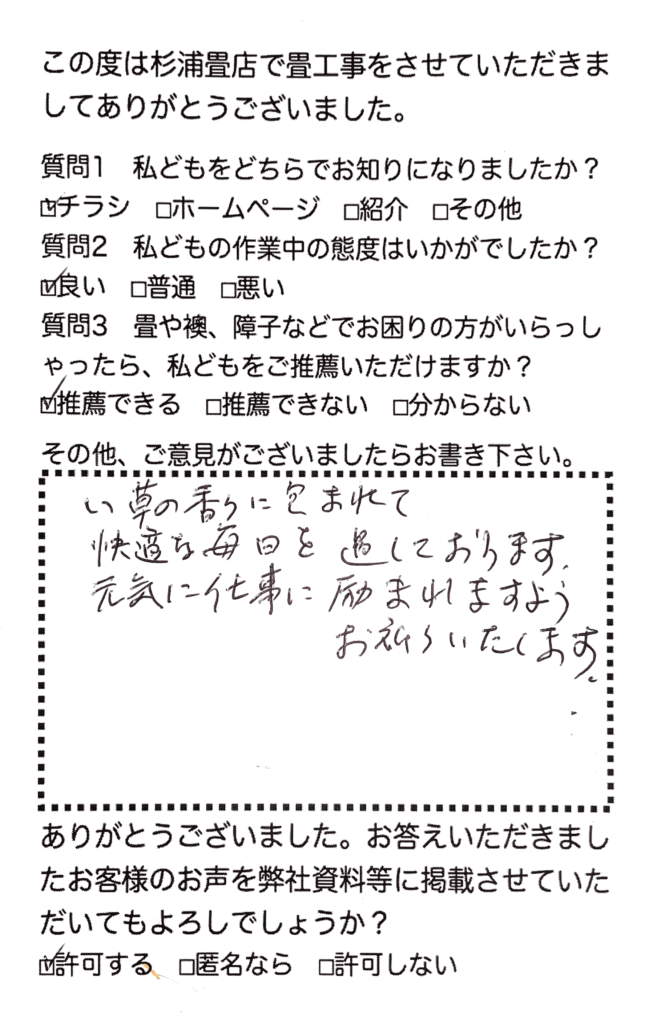 この度は杉浦畳店で畳工事をさせていただきま
してありがとうございました。
質問1　私どもをどちらでお知りになりましたか？
☑チラシ　□ホームページ　□紹介　□その他
質問2　私どもの作業中の態度はいかがでしたか？
☑良い　□普通　□悪い
質問3　畳や襖、障子などでお困りの方がいらっし
ゃったら、私どもをご推薦いただけますか？
☑推薦できる　□推薦できない　□分からない
その他、ご意見がございましたらお書き下さい。
い草の香りに包まれて
快適な毎日を過しております。
元気に仕事に励まれますよう
お祈りいたします。
ありがとうございました。お答えいただきまし
たお客様のお声を弊社資料等に掲載させていた
だいてもよろしでしょうか？
☑許可する　□匿名なら　□許可しない